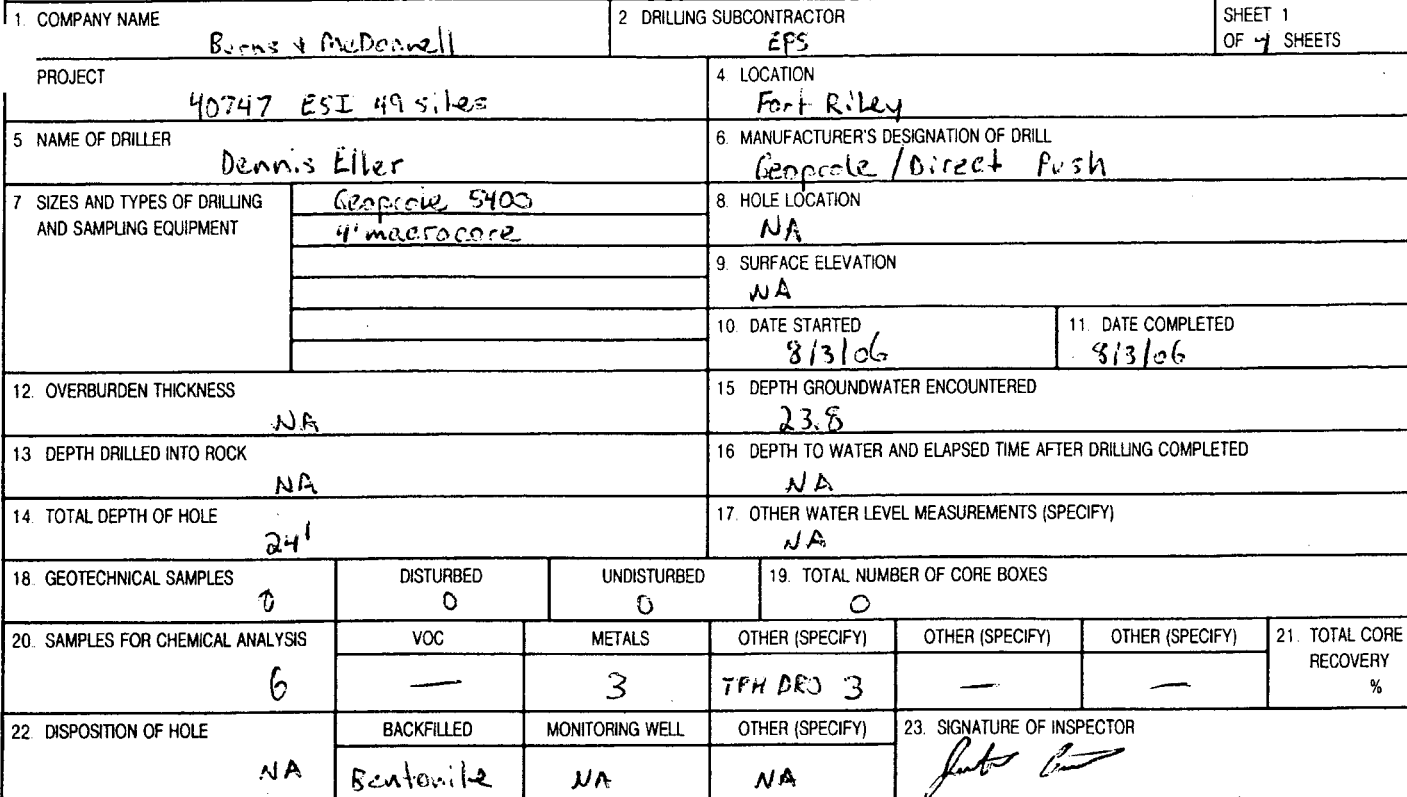 1. COMPANY NAME
Burns & McDonnell
2 DRILLING SUBCONTRACTOR
EPS
SHEET 1
OF 4 SHEETS
PROJECT
40747 ESI 49 sites
4. LOCATION
Fort Riley
5 NAME OF DRILLER
Dennis Eller
6. MANUFACTURER'S DESIGNATION OF DRILL
Geoprobe / Direct Push
7 SIZES AND TYPES OF DRILLING
AND SAMPLING EQUIPMENT
Geoprobe 5400
4' macrocore
8. HOLE LOCATION
NA
9. SURFACE ELEVATION
NA
10. DATE STARTED
8/3/06
11. DATE COMPLETED
8/3/06
12. OVERBURDEN THICKNESS
NA
15 DEPTH GROUNDWATER ENCOUNTERED
23.8
13 DEPTH DRILLED INTO ROCK
NA
16 DEPTH TO WATER AND ELAPSED TIME AFTER DRILLING COMPLETED
NA
14. TOTAL DEPTH OF HOLE
24'
17. OTHER WATER LEVEL MEASUREMENTS (SPECIFY)
NA
18. GEOTECHNICAL SAMPLES
0
DISTURBED
0
UNDISTURBED
0
19. TOTAL NUMBER OF CORE BOXES
0
20. SAMPLES FOR CHEMICAL ANALYSIS
6
VOC
—
METALS
3
OTHER (SPECIFY)
TPH DRO 3
OTHER (SPECIFY)
—
OTHER (SPECIFY)
—
21. TOTAL CORE
RECOVERY
%
22. DISPOSITION OF HOLE
NA
BACKFILLED
Bentonite
MONITORING WELL
NA
OTHER (SPECIFY)
NA
23. SIGNATURE OF INSPECTOR